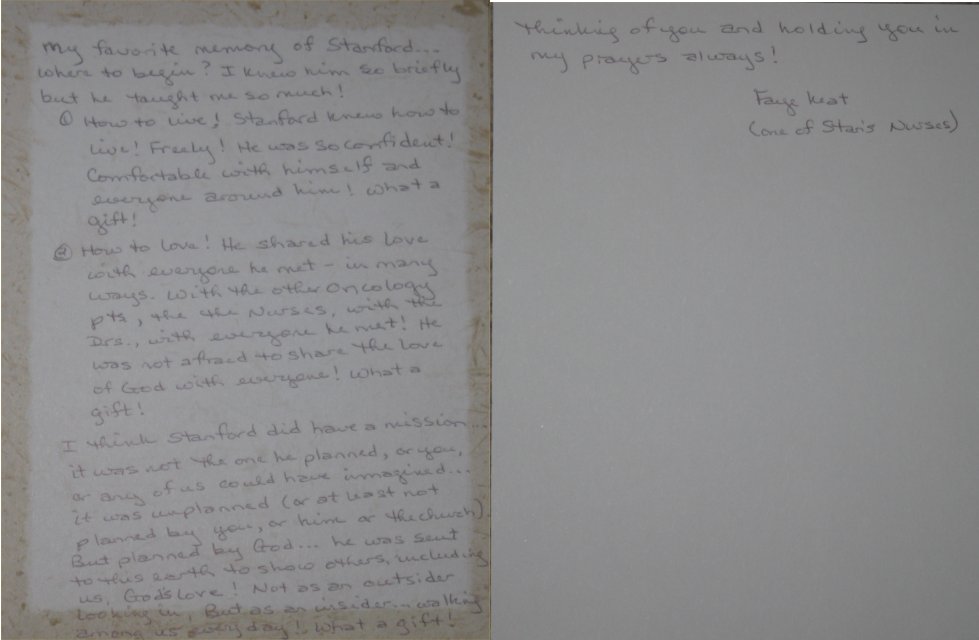 My favorite memory of Stanford...
where to begin? I knew him so briefly
but he taught me so much!
① How to live! Stanford knew how to
live! Freely! He was so confident!
Comfortable with himself and
everyone around him! What a
gift!
② How to love! He shared his love
with everyone he met - in many
ways. With the other oncology
pts, the the Nurses, with the
Drs., with everyone he met! He
was not afraid to share the love
of God with everyone! What a
gift!
I think Stanford did have a mission...
it was not the one he planned, or you,
or any of us could have immagined...
it was unplanned (or at least not
planned by you, or him or the church).
But planned by God... he was sent
to this earth to show others, including
us, God's love! Not as an outsider
looking in, But as an insider... walking
among us every day! What a gift!
Thinking of you and holding you in
my prayers always!
Faye
(one of Stan's Nurses)